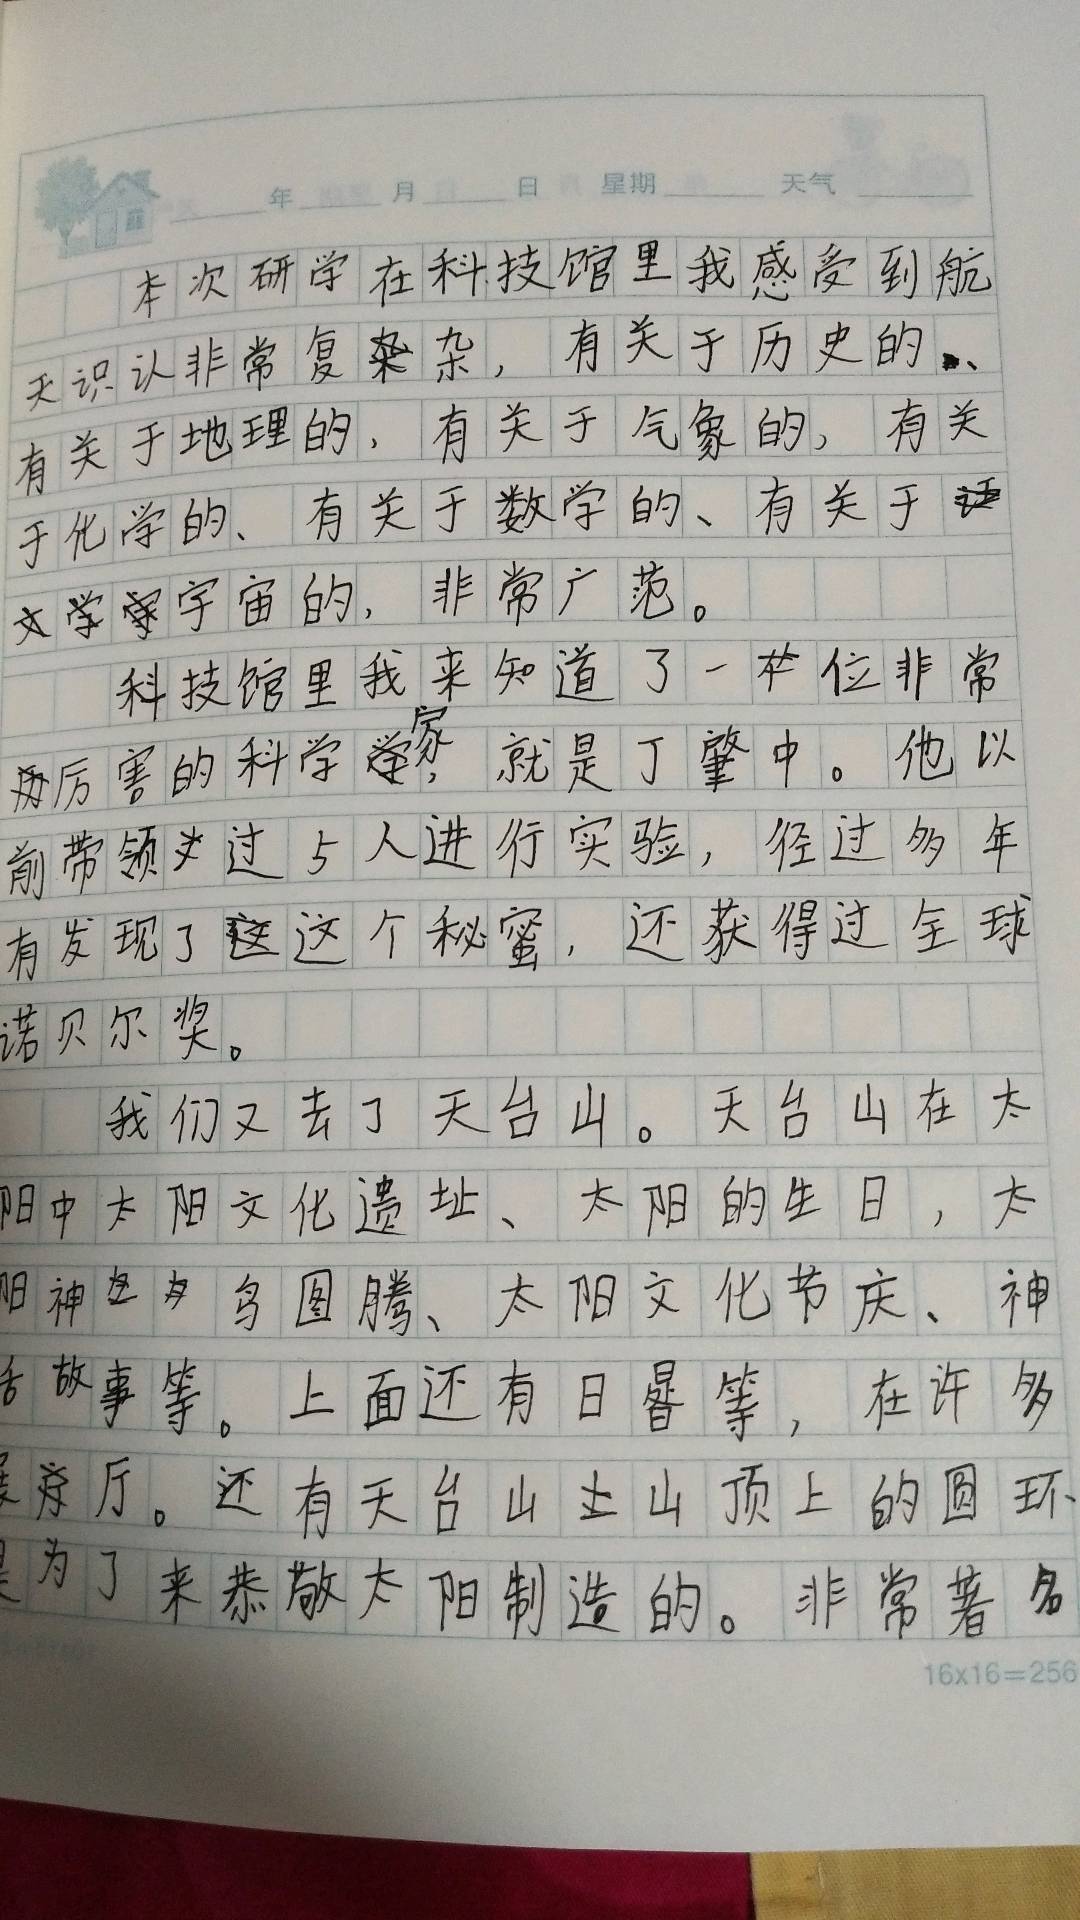 年 月 日 星期 天气
本次研学在科技馆里我感受到航
天识认非常复杂，有关于历史的、
有关于地理的，有关于气象的，有关
于化学的、有关于数学的、有关于
宇宙的，非常广范。
科技馆里我来知道了一位非常
厉害的科学家，就是丁肇中。他以
前带领过5人进行实验，径过多年
有发现了这个秘蜜，还获得过全球
诺贝尔奖。
我们又去了天台山。天台山在太
阳中太阳文化遗址、太阳的生日，太
阳神鸟图腾、太阳文化节庆、神
话故事等。上面还有日晷等，在许多
展厅。还有天台山山顶上的圆环
是为了来恭敬太阳制造的。非常著名
16x16=256